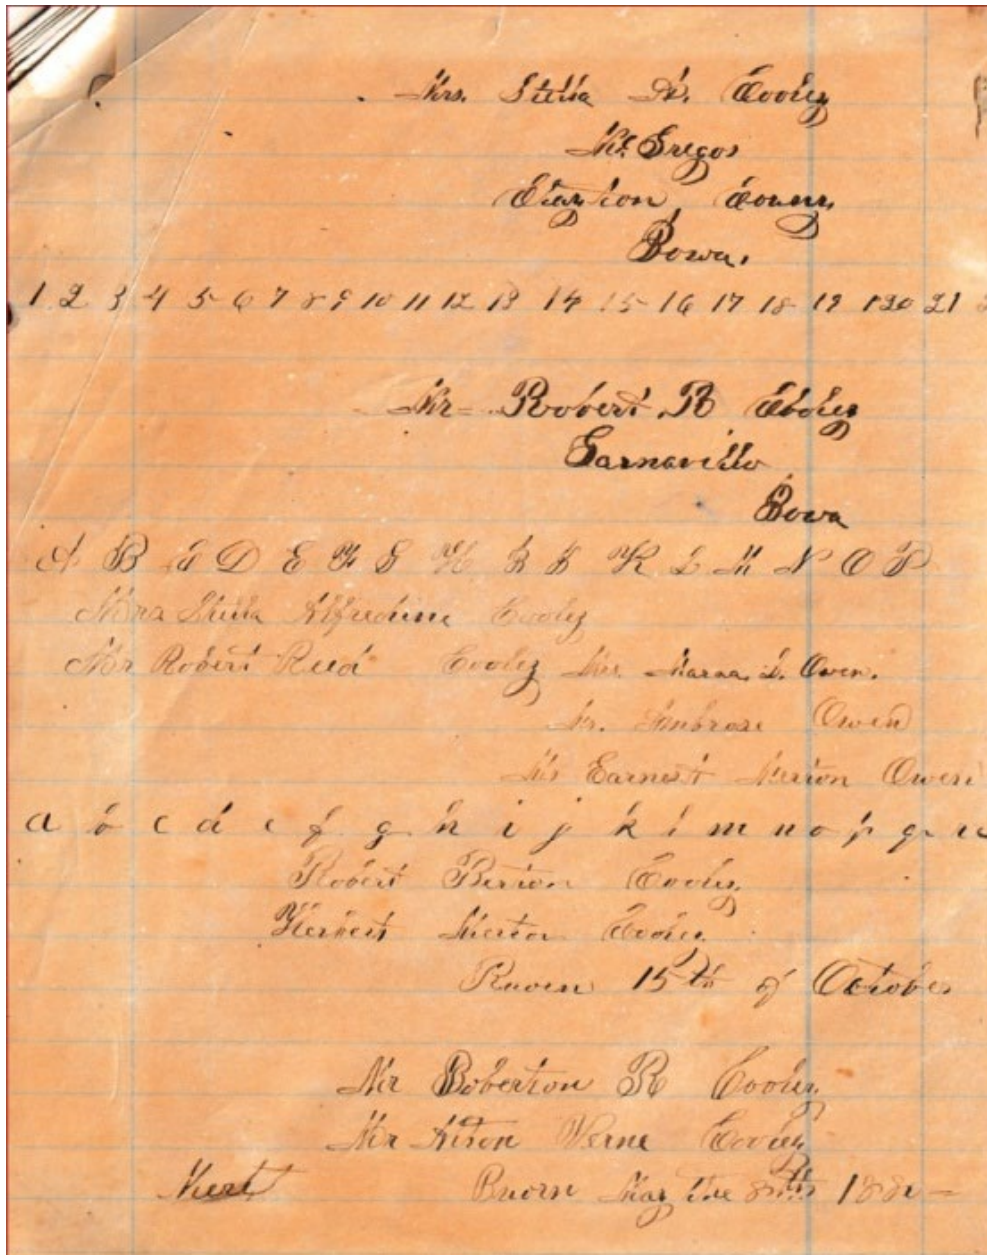 Mrs. Stella A. Cooley
Mc Gregor
Clayton County
Iowa.
1 2 3 4 5 6 7 8 9 10 11 12 13 14 15 16 17 18 19 120 21 2
Mr Robert R Cooley
Garnavillo
Iowa
A B C D E F G H I J K L M N O P
Stella Alfredine Cooley
Mr Robert Reed Cooley Mrs. D. Owen.
Mr. Ambrose Owen
Earnest Merton Owen
a b c d e f g h i j k l m n o p q r
Robert Berton Cooley
Herbert Merton Cooley
15th of October
Mr Roberton R Cooley
Mr Verne Cooley
Mert May the 188